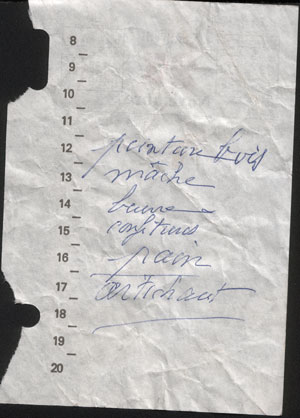 8
9
10
11
12
peinture bois
13
mâche
14
beurre
15
confitures
16
pain
17
artichaut
18
19
20